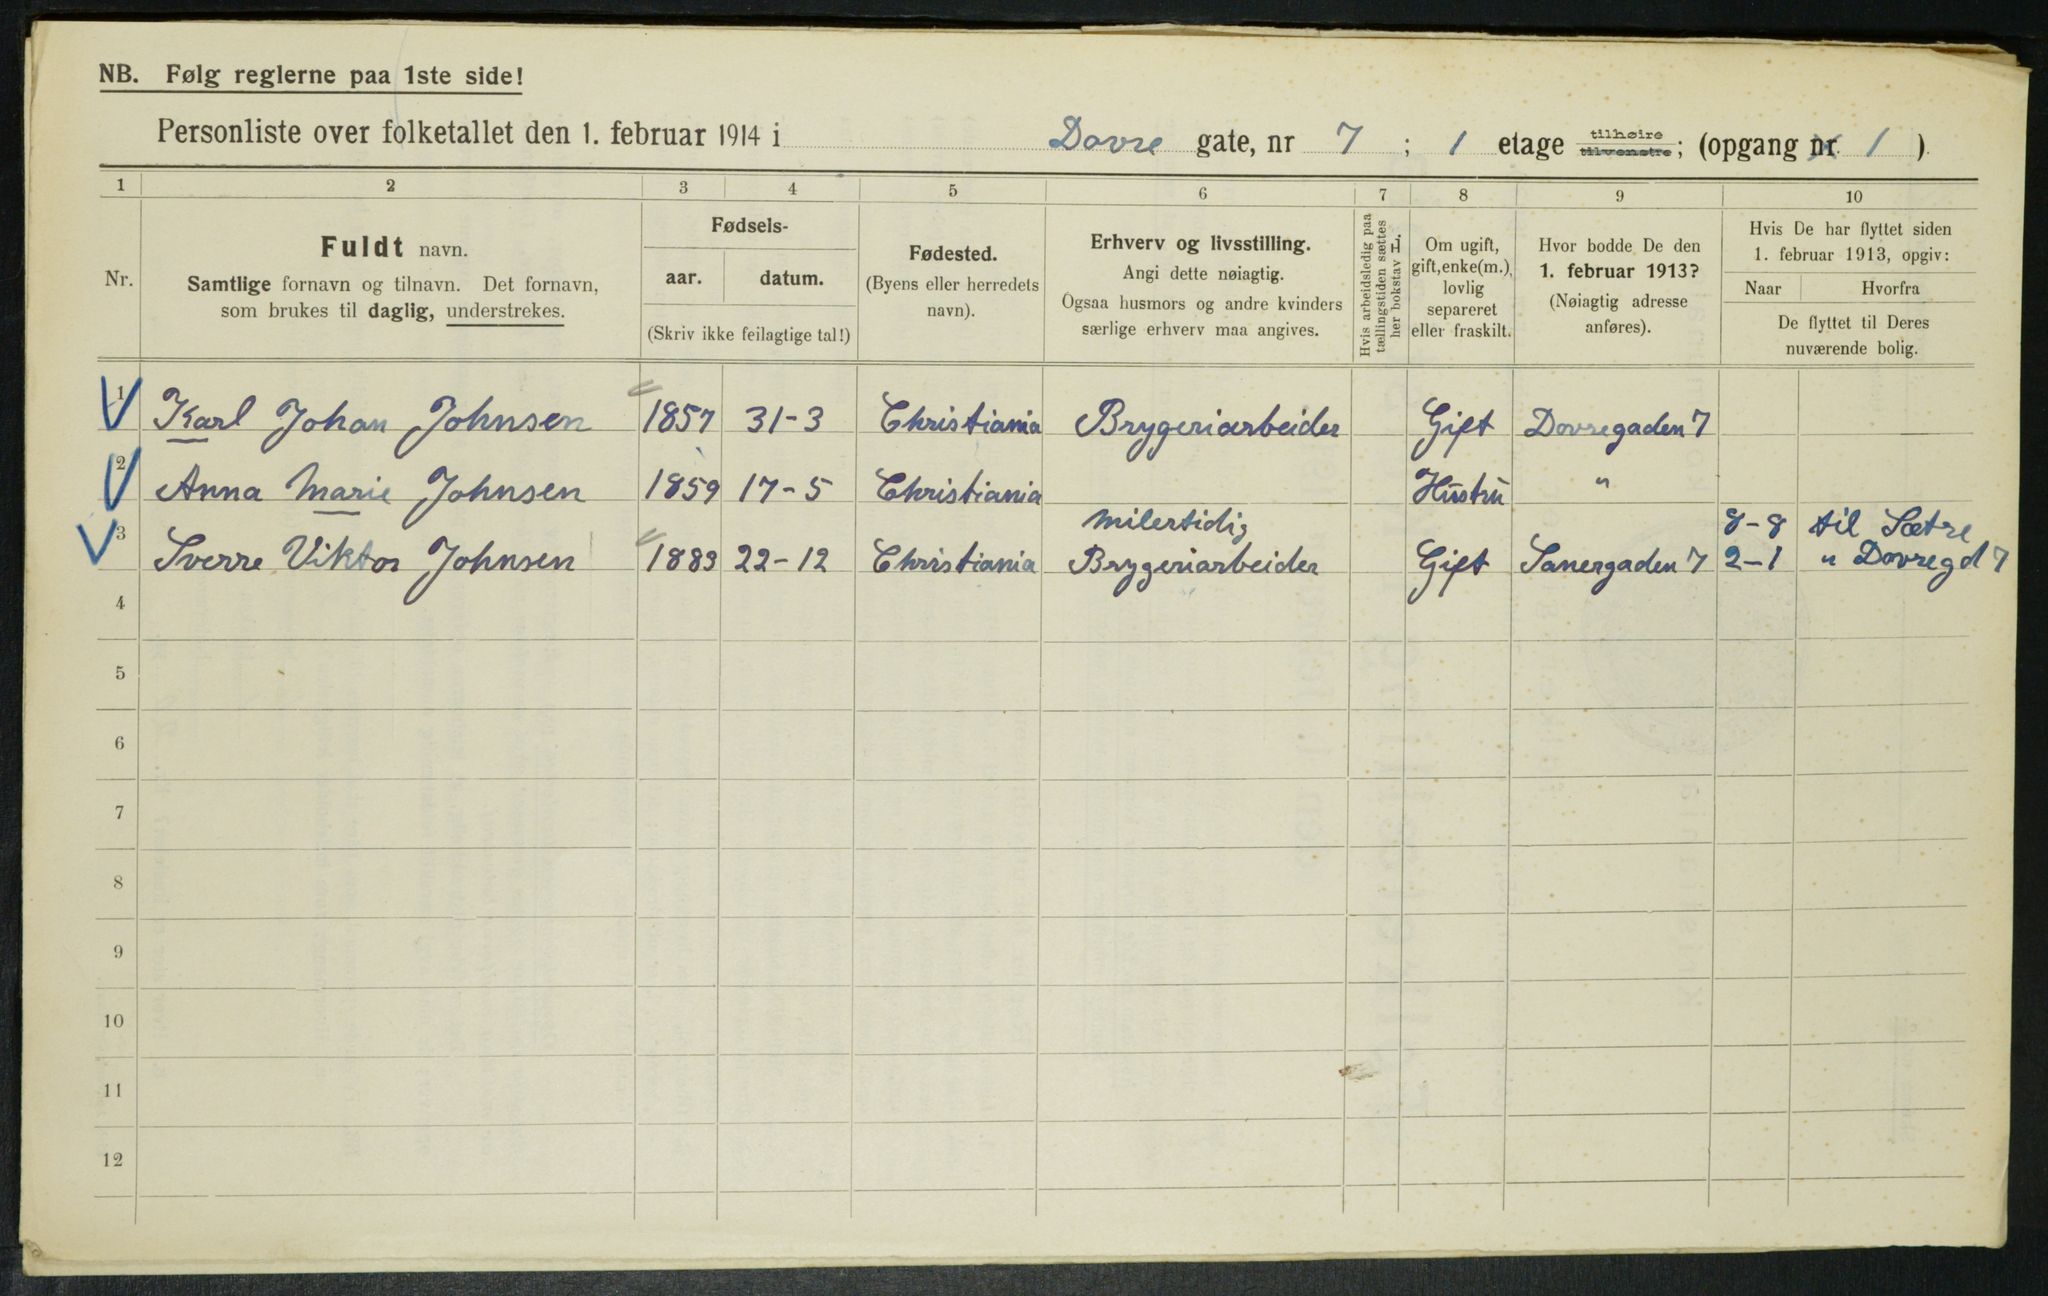 NB. Følg reglerne paa 1ste side!
Personliste over folketallet den 1. februar 1914 i Dovre gate, nr 7 ; 1 etage tilhøire tilvenstre ; (opgang nr. 1 ).
1 2 3 4 5 6 7 8 9 10
Nr.
Fuldt navn.
Samtlige fornavn og tilnavn. Det fornavn,
som brukes til daglig, understrekes.
Fødsels-
aar. datum.
(Skriv ikke feilagtige tal!)
Fødested.
(Byens eller herredets
navn).
Erhverv og livsstilling.
Angi dette nøiagtig.
Ogsaa husmors og andre kvinders
særlige erhverv maa angives.
Hvis arbeidsledig paa
tællingstiden sættes
her bokstav L.
Om ugift,
gift, enke(m.),
lovlig
separeret
eller fraskilt.
Hvor bodde De den
1. februar 1913?
(Nøiagtig adresse
anføres).
Hvis De har flyttet siden
1. februar 1913, opgiv:
Naar Hvorfra
De flyttet til Deres
nuværende bolig.
1 Karl Johan Johnsen 1857 31-3 Christiania Brygeriarbeider Gift Dovregaden 7
2 Anna Marie Johnsen 1859 17-5 Christiania Hustru "
milertidig 8-8 til Sætre
3 Sverre Viktor Johnsen 1883 22-12 Christiania Brygeriarbeider Gift Sanergaden 7 2-1 " Dovregd 7
4
5
6
7
8
9
10
11
12